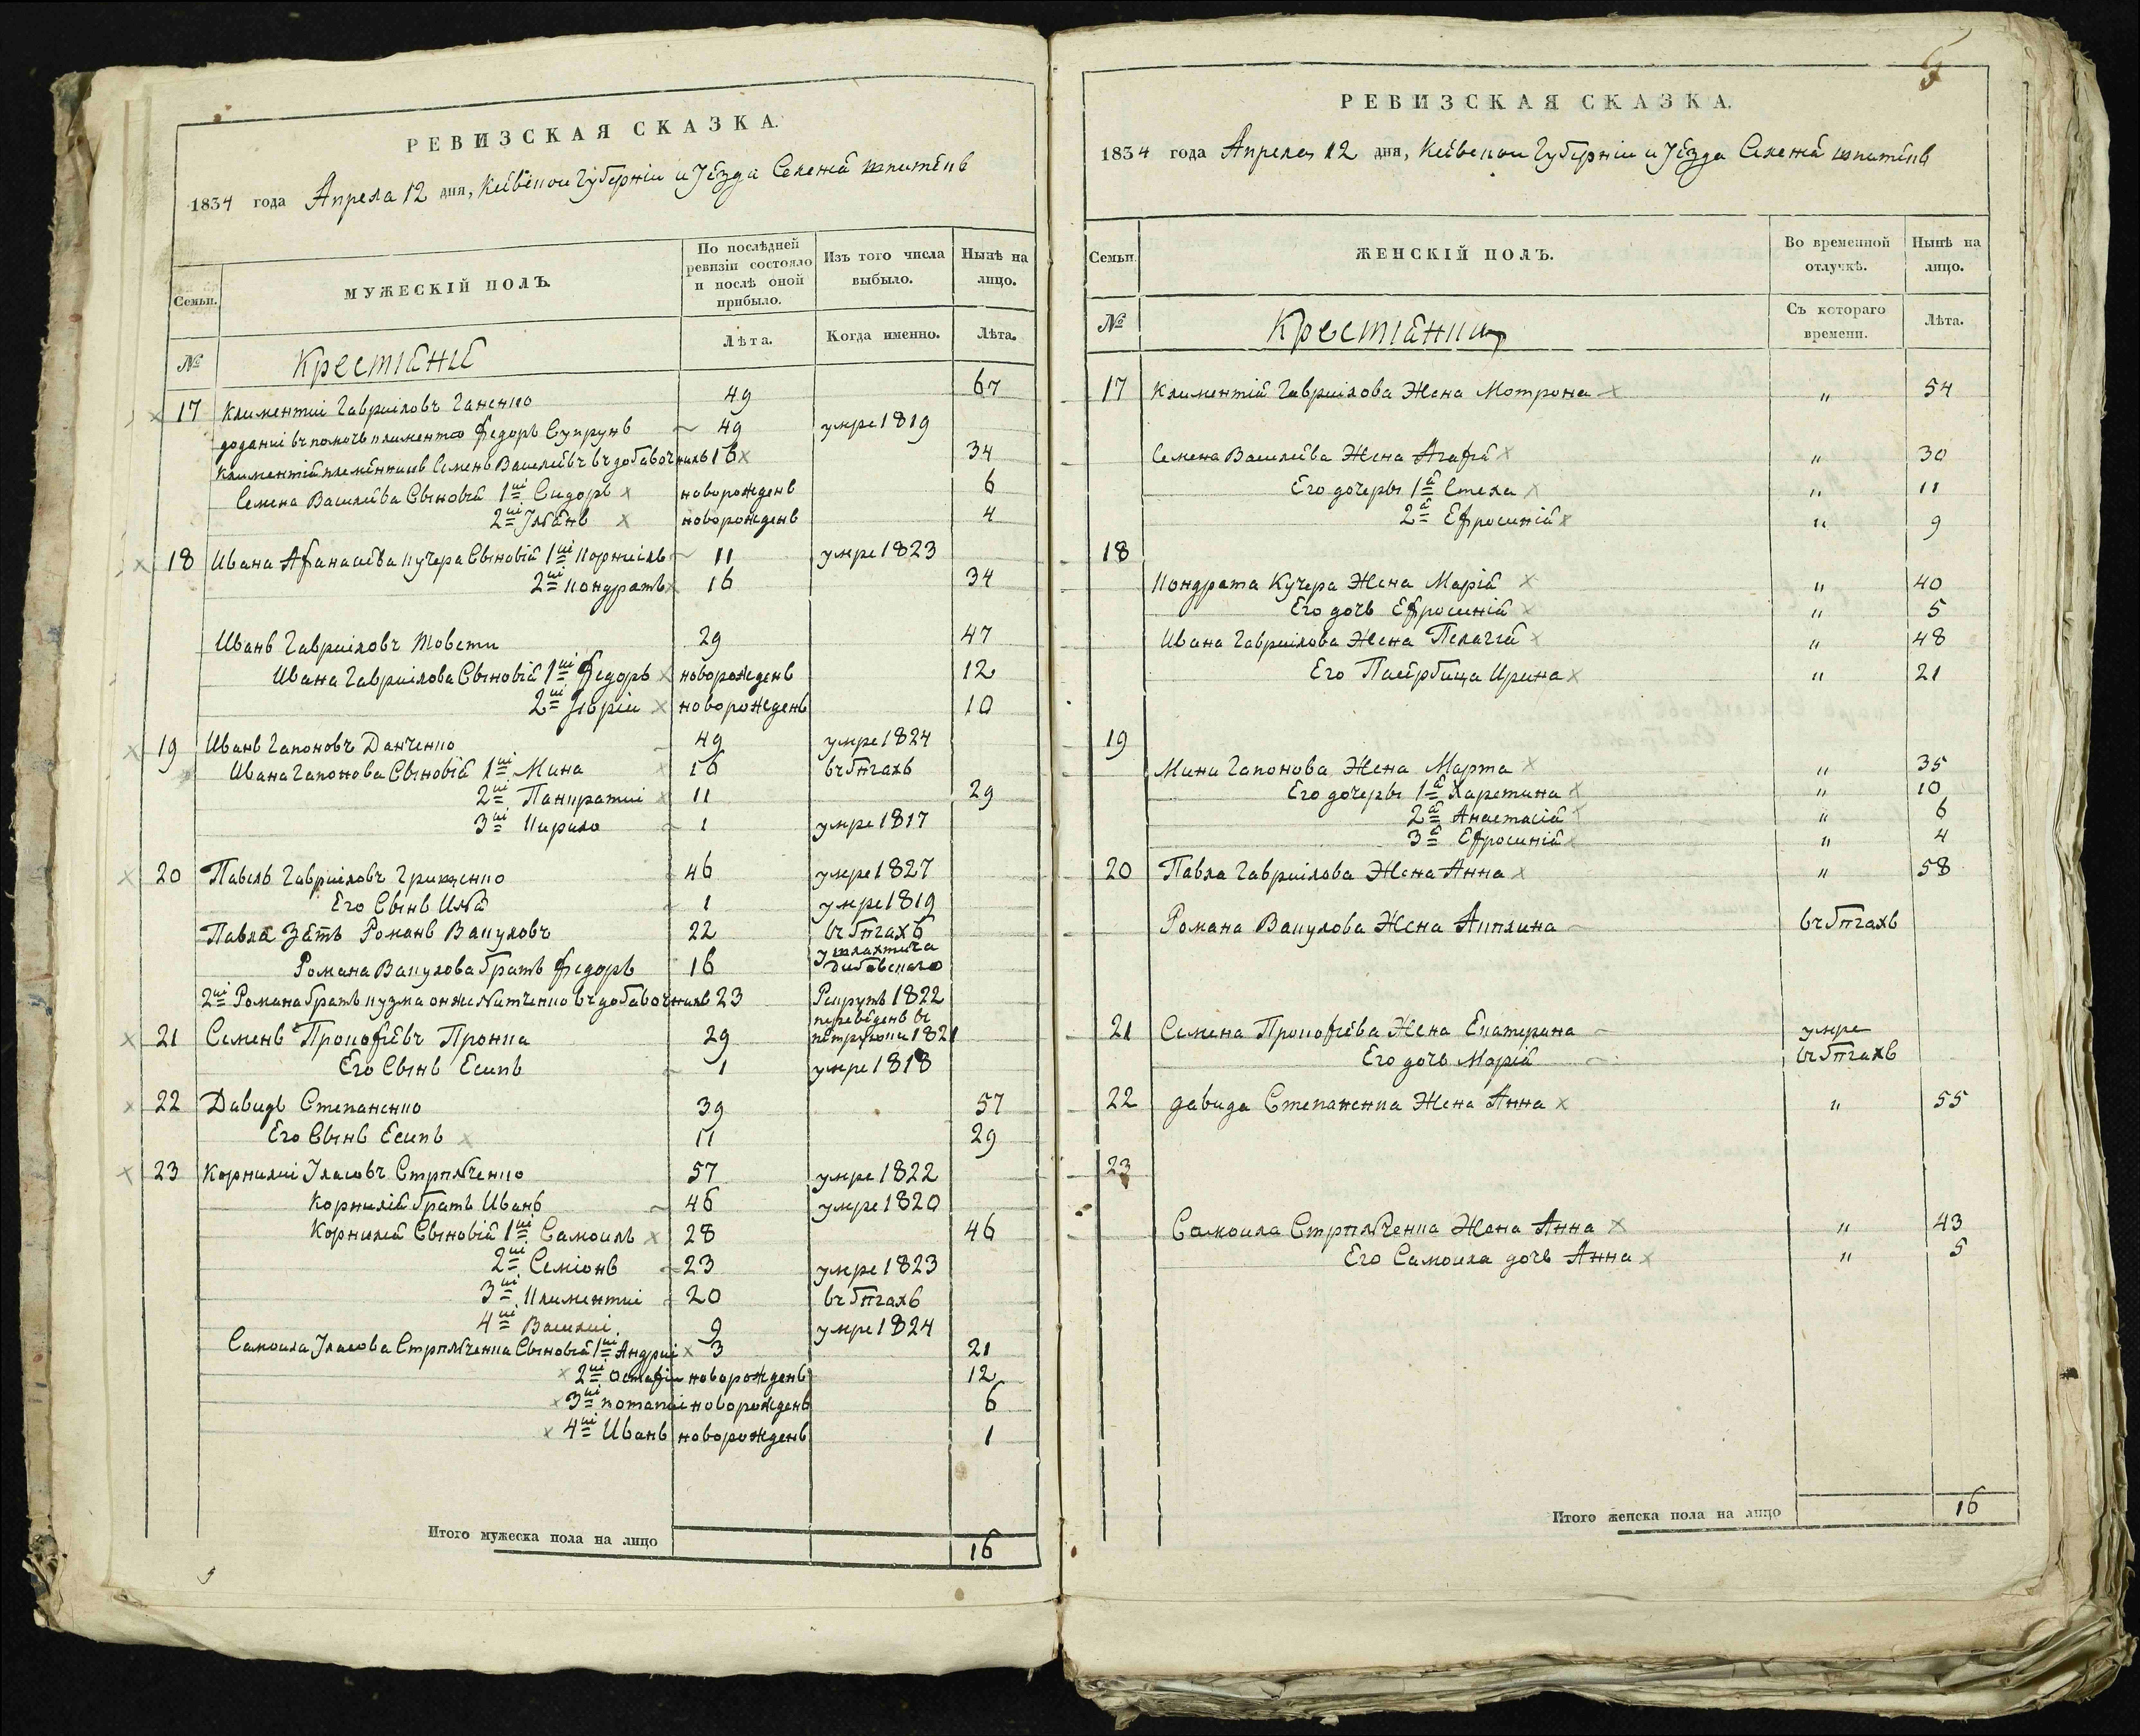 РЕВИЗСКАЯ СКАЗКА.
1834 года Апреля 12 дня, Киевской Губерніи и Уезда Селенія
По послѣдней ревизіи состояло и послѣ оной прибыло.
Изъ того числа выбыло.
Нынѣ на лицо.
Семьи.
МУЖЕСКІЙ ПОЛЪ.
Лѣта.
Когда именно.
Лѣта.
№
Крестіяни
17 Климентіи Гавриловъ Ганенко 49 67
доданіи въ помочь Климентію Федоръ Супрунъ 49 умре 1819
Климентія племянникъ Семенъ Василіевъ въ добавочнихъ 16 34
Семена Василіева Сыновія 1й Сидоръ новорожденъ 6
2й новорожденъ 4
18 Ивана Афанасіева Кучера Сыновія 1й Корніилъ 11 умре 1823
2й Кондратъ 16 34
Иванъ Гавриловъ Товсти 29 47
Ивана Гаврилова Сыновія 1й Федоръ новорожденъ 12
2й новорожденъ 10
19 Иванъ Гапоновъ Данченко 49 умре 1824
Ивана Гапонова Сыновія 1й Мина 16 въ бѣгахъ
2й Панкратіи 11 29
3й Кирило 1 умре 1817
20 Павелъ Гавриловъ Грищенко 46 умре 1827
Его Сынъ Илія 1 умре 1819
Павла Зять Романъ Вакуловъ 22 въ бѣгахъ
у шляхтича
Романа Вакулова братъ Федоръ 16
2й Романа братъ Кузма онже Никченко въ добавочнихъ 23 Рекрутъ 1822
переведенъ въ
21 Семенъ Прокофіевъ Пронка 29 1821
Его Сынъ Есипъ 1 умре 1818
22 Давидъ Степаненко 39 57
Его Сынъ Есипъ 11 29
23 Корниліи Уласовъ 57 умре 1822
Корнилія братъ Иванъ 46 умре 1820
Корнилія Сыновія 1й Самоилъ 28 46
2й Семіонъ 23 умре 1823
3й Климентіи 20 въ бѣгахъ
4й Василіи 9 умре 1824
Самоила Уласова Сыновія 1й Андріи 3 21
2й Остафіи новорожденъ 12
3й Потапіи новорожденъ 6
4й Иванъ новорожденъ 1
Итого мужеска пола на лицо 16
РЕВИЗСКАЯ СКАЗКА.
1834 года Апреля 12 дня, Киевской Губерніи и Уезда Селенія
Семьи.
ЖЕНСКІЙ ПОЛЪ.
Во временной отлучкѣ.
Нынѣ на лицо.
№
Съ котораго времени.
Лѣта.
Крестіянки
17 Климентія Гаврилова Жена Мотрона " 54
Семена Василіева Жена Агафія " 30
Его дочеры 1я Стеха " 11
2я Ефросинія " 9
18
Кондрата Кучера Жена Марія " 40
Его дочь Ефросинія " 5
Ивана Гаврилова Жена Пелагія " 48
Его Ирина " 21
19
Мини Гапонова Жена Марта " 35
Его дочеры 1я Харетина " 10
2я Анастасія " 6
3я Ефросинія " 4
20 Павла Гаврилова Жена Анна " 58
Романа Вакулова Жена Акилина въ бѣгахъ
21 Семена Прокофіева Жена Екатерина умре
Его дочь Марія въ бѣгахъ
22 Давида Степаненка Жена Анна " 55
23
Самоила Жена Анна " 43
Его Самоила дочь Анна " 5
Итого женска пола на лицо 16